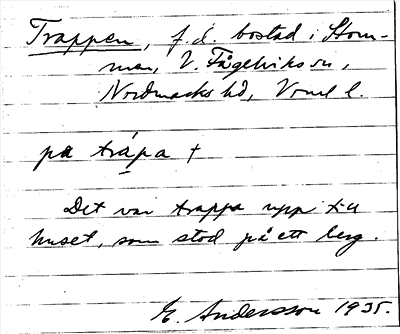 Trappen, f.d. bostad i Stom-
men, V. Fågelviks sn,
Nordmarks hd, Vrml l.
på trápa †
Det var trappa upp till
huset, som stod på ett berg.
E. Andersson 1935.